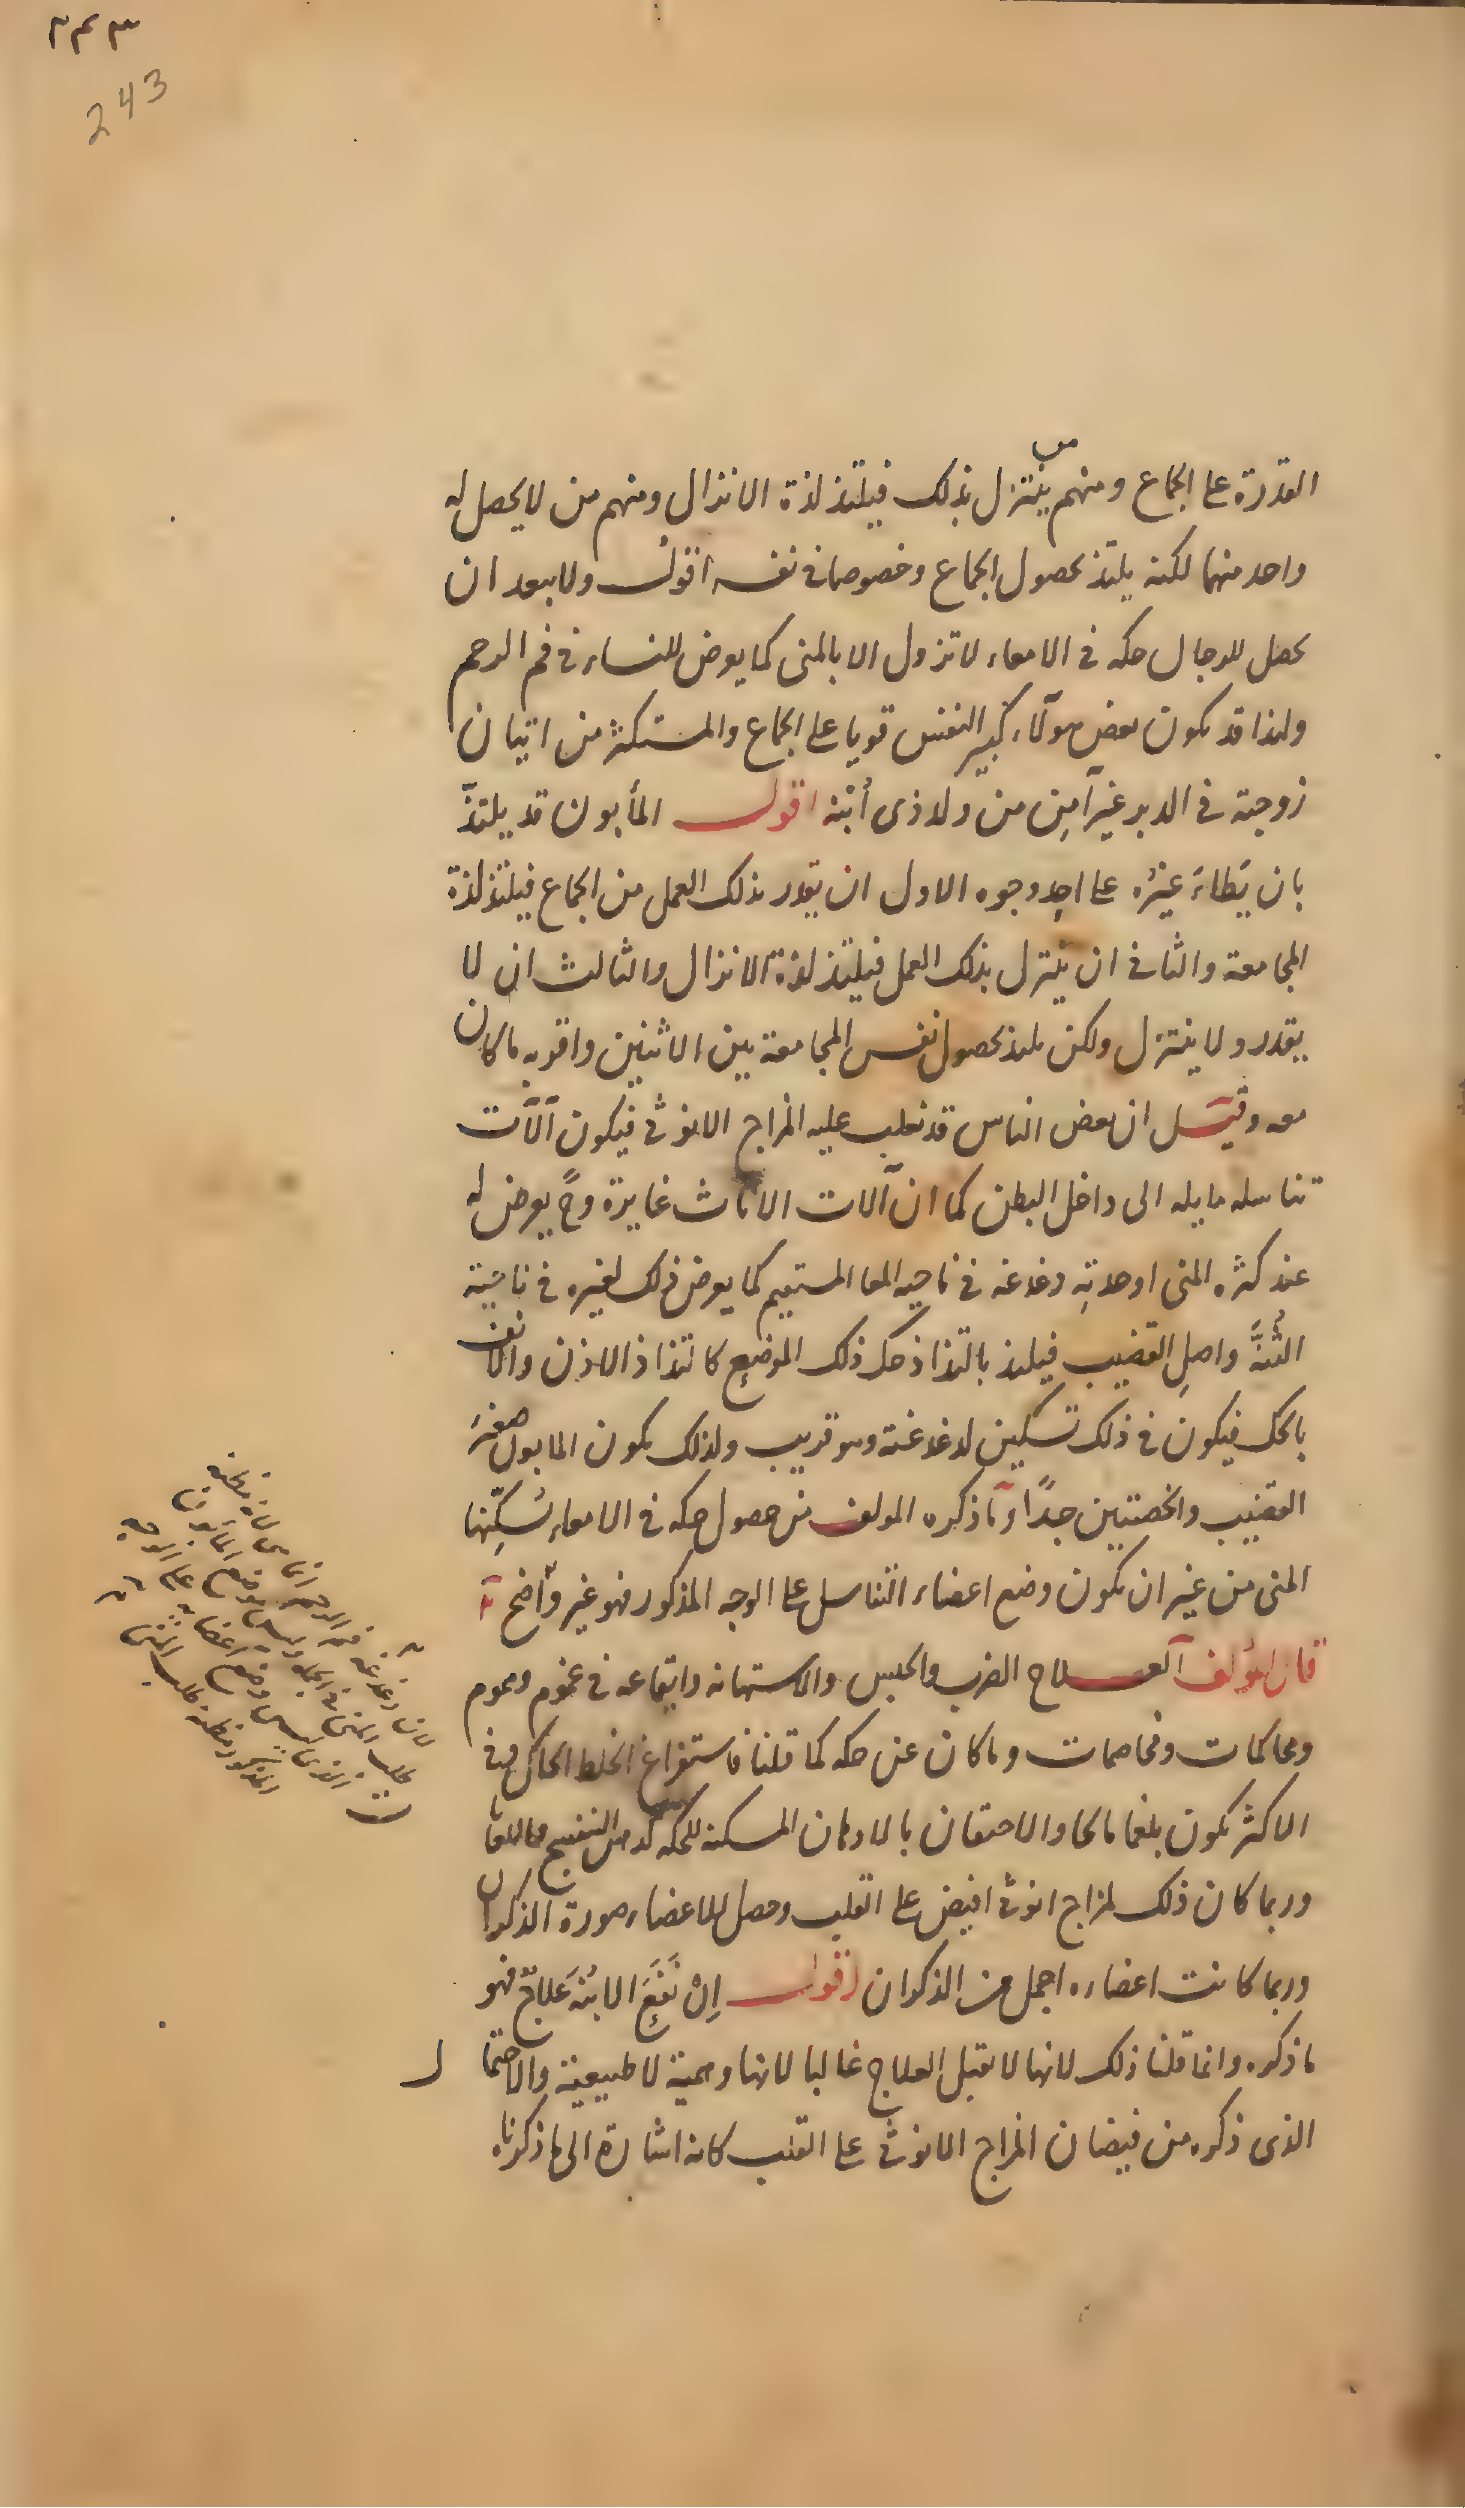 ٢٤٣
243
القدرة على الجماع ومنهم من ينزل بذلك فيلتذ لذة الانزال ومنهم من لا يحصل له
واحد منهما لكنه يلتذ بحصول الجماع وخصوصا في نفسه اقول ولا يبعد ان
يحصل للرجال حكه في الامعاء لا تزول الا بالمنى كما يعرض للنساء في فم الرحم
ولهذا قد يكون بعض هولاء كبير النفس قويا على الجماع والمستكثر من اتيان
زوجته في الدبر غير آمن من ولد ذى أبنه اقول المأبون قد يلتذ
بان يَطاءَ غيرُه على احد وجوه الاول ان يقدر بذلك العمل من الجماع فيلتذ لذة
المجامعة والثانى ان ينزل بذلك العمل فيلتذ لذة الانزال والثالث ان لا
يقدر ولا ينزل ولكن يلتذ بحصول نفس المجامعة بين الاثنين واقربه ما كان
معه وقيل ان بعض الناس قد تغلب عليه المزاج الانوثى فيكون آلآت
تناسله مايله الى داخل البطن كما ان آلات الاناث غايرة وحً يعرض له
عند كثره المنى او حدته دغدغه في ناحيه المعا المستقيم كما يعرض ذلك لغيره في ناحية
الثُنَّه واصلِ القضيب فيلتذ بالتذاذ حك ذلك الموضع كالتذاذ الاذن والانف
بالحك فيكون في ذلك تسكين لدغدغته وهو قريب ولذلك يكون المابون صغير
القضيب والخصيتين جدًا وما ذكره المولف من حصول حكه في الامعاء تسكِّنها
المنى من غير ان يكون وضع اعضاء التناسل على الوجه المذكور فهو غير واضح
قال المؤلف العـلاج الضرب والحبس والاستهانه وايقاعه في غموم وهموم
ومحاكمات ومخاصمات وما كان عن حكه كما قلنا فاستفراغ الخلط الحاك وفى
الاكثر يكون بلغما مالحا والاحتقان بالادهان المسكنه للحكه كدهن البنفسج
وربما كان ذلك لمزاج انوثى افيض على القلب وحصل للاعضاء صورة الذكران
وربما كانت اعضاره اجمل من الذكران اقول اِنْ نَفَعَ الابنَهَ عَلاجٌ فهو
ما ذكره وانما قلنا ذلك لانها لا تقبل العلاج غالبا لانها وهمية لا طبيعية والاحتما ل
الذى ذكره من فيضان المزاج الانوثى على القلب كانه اشارة الى ما ذكرناه
لان دغدغه فم الرحم انما هى
المنى